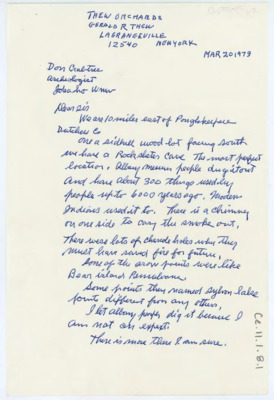 THEW ORCHARDS
GERALD R THEW
LAGRANGEVILLE
12540 NEW YORK
MAR 20 1973
Don Crabtree
Archeologist
Idaho Univ
Dear Sir
We are 10 miles east of Poughkeepsie
Dutchess Co
One a sidhill wood lot facing south
we have a Rock slates Cave The most perfect
location. Albany museum people dug it out
And have about 300 things used by
people up to 6000 years ago. Modern
Indians used it to. There is a chimney
on one side to cary the smoke out,
There were lots of charcole holes why they
must have saved fire for future,
Some of the arrow points were like
Bear island Pensilvania
Some points they named Sylvan lake
points different from any others,
I let albany people dig it because I
am not an expert
There is more there I am sure.
Ce.11.1-8.1